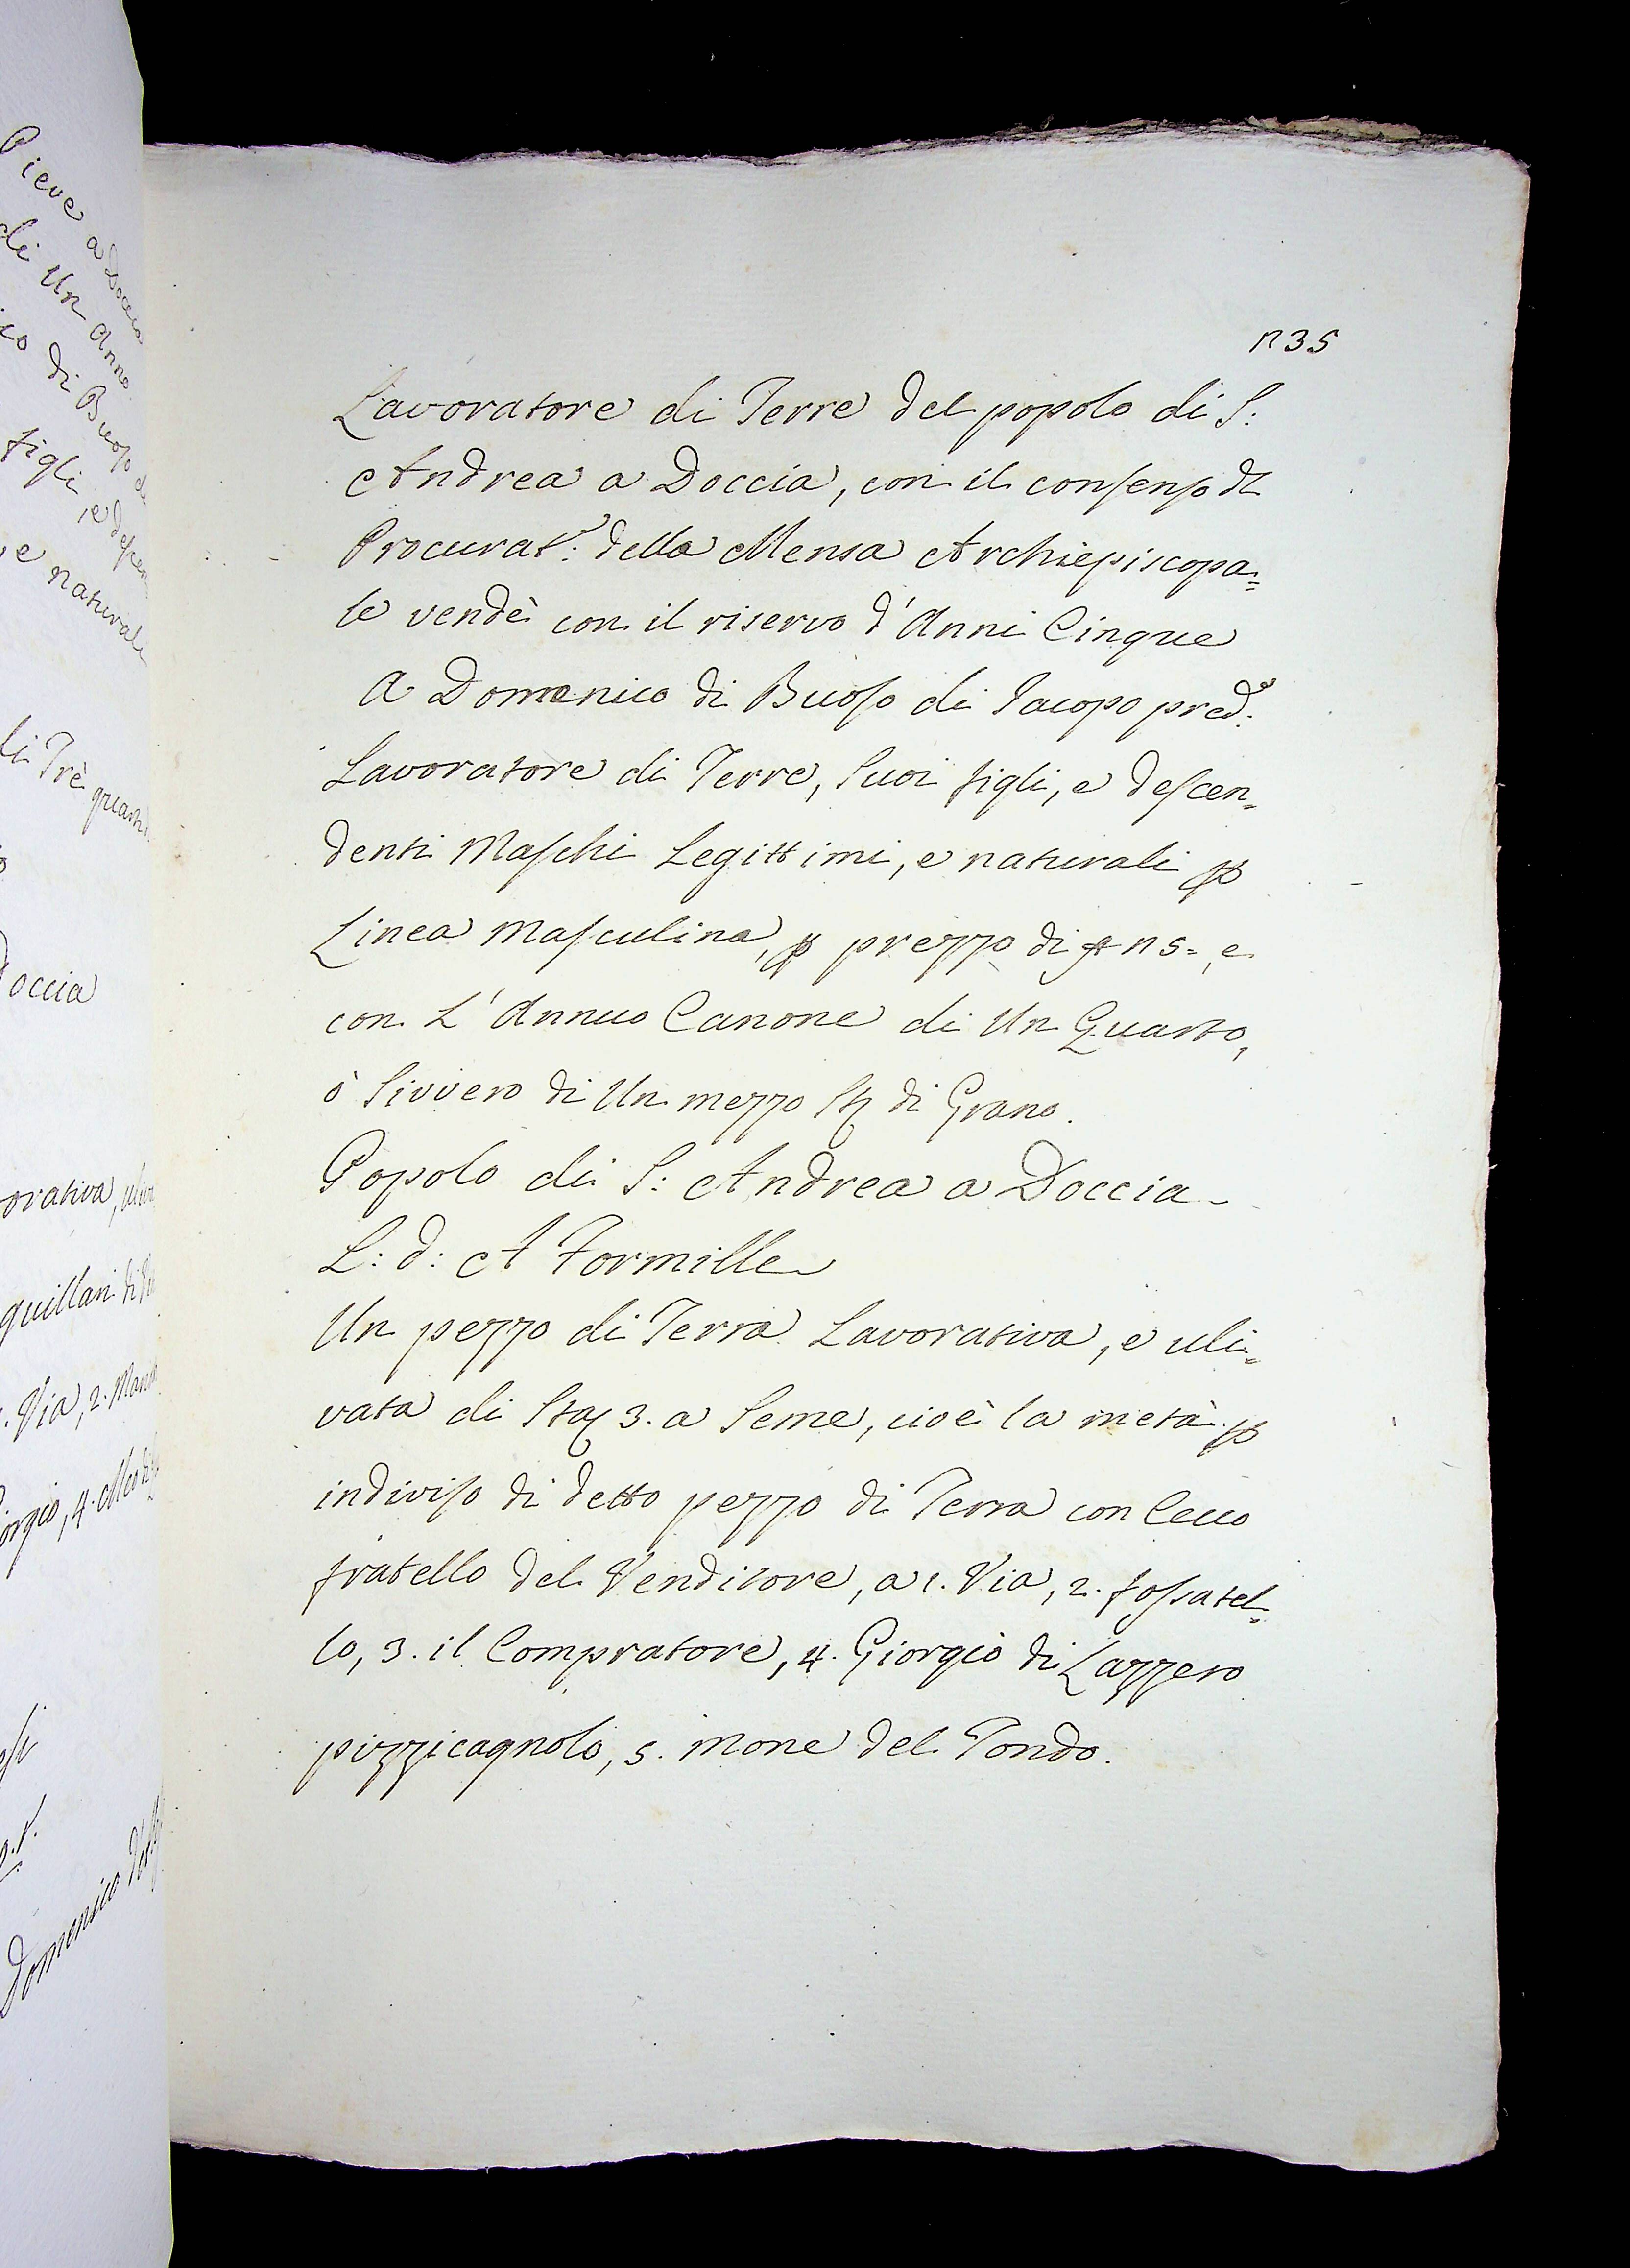 Pieve a Doccia
di Un Anno
ico di Buoso
figli, e
e naturale
li Trè
Doccia
orativa,
quillari di
Via, 2.
iorgio, 4.
Domenico
135
Lavoratore di Terre del popolo di S:
Andrea a Doccia, con il consenso dl
Procurat:e della Mensa Archiepiscopa=
le vendè con il riservo d'Anni Cinque
A Domenico di Buoso di Jacopo pred:o
Lavoratore di Terre, Suoi figli, e descen=
denti Maschi Legittimi, e naturali ꝑ
Linea Masculina, ꝑ prezzo di 15=, e
con L'Annuo Canone di Un Quarto,
ò Sivvero di Un mezzo St di Grano.
Popolo di S: Andrea a Doccia
L: d: A Formille
Un pezzo di Terra Lavorativa, e uli=
vata di Sta 3. a Seme, cioè la metà ꝑ
indiviso di detto pezzo di Terra con Cecco
fratello del Venditore, a 1. Via, 2. fossatel=
lo, 3. il Compratore, 4. Giorgio di Lazzero
pizzicagnolo, 5. Mone del Tondo.